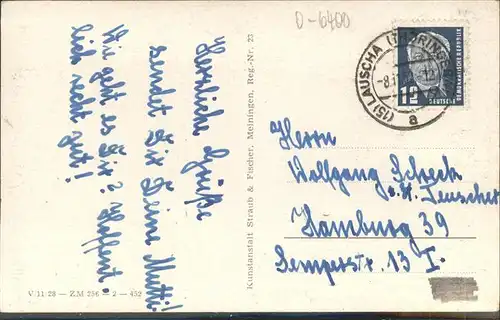 D-6400
Herzliche Grüße
sendet Dir Deine Mutti!
Wie geht es Dir? Hoffent-
lich recht gut!
V 11 28 — Z.M 256 — 2 — 452
Kunstanstalt Straub & Fischer, Meiningen, Reg.-Nr. 23
(15) LAUSCHA (THÜRING
-8.11
12
a
12
DEUTSCHE
DEMOKRATISCHE REPUBLIK
Herrn
Wolfgang Scheck
Hamburg 39
Semperstr. 13 I.